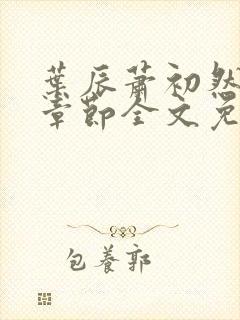 葉辰蕭初然
章節全文免
包養郭